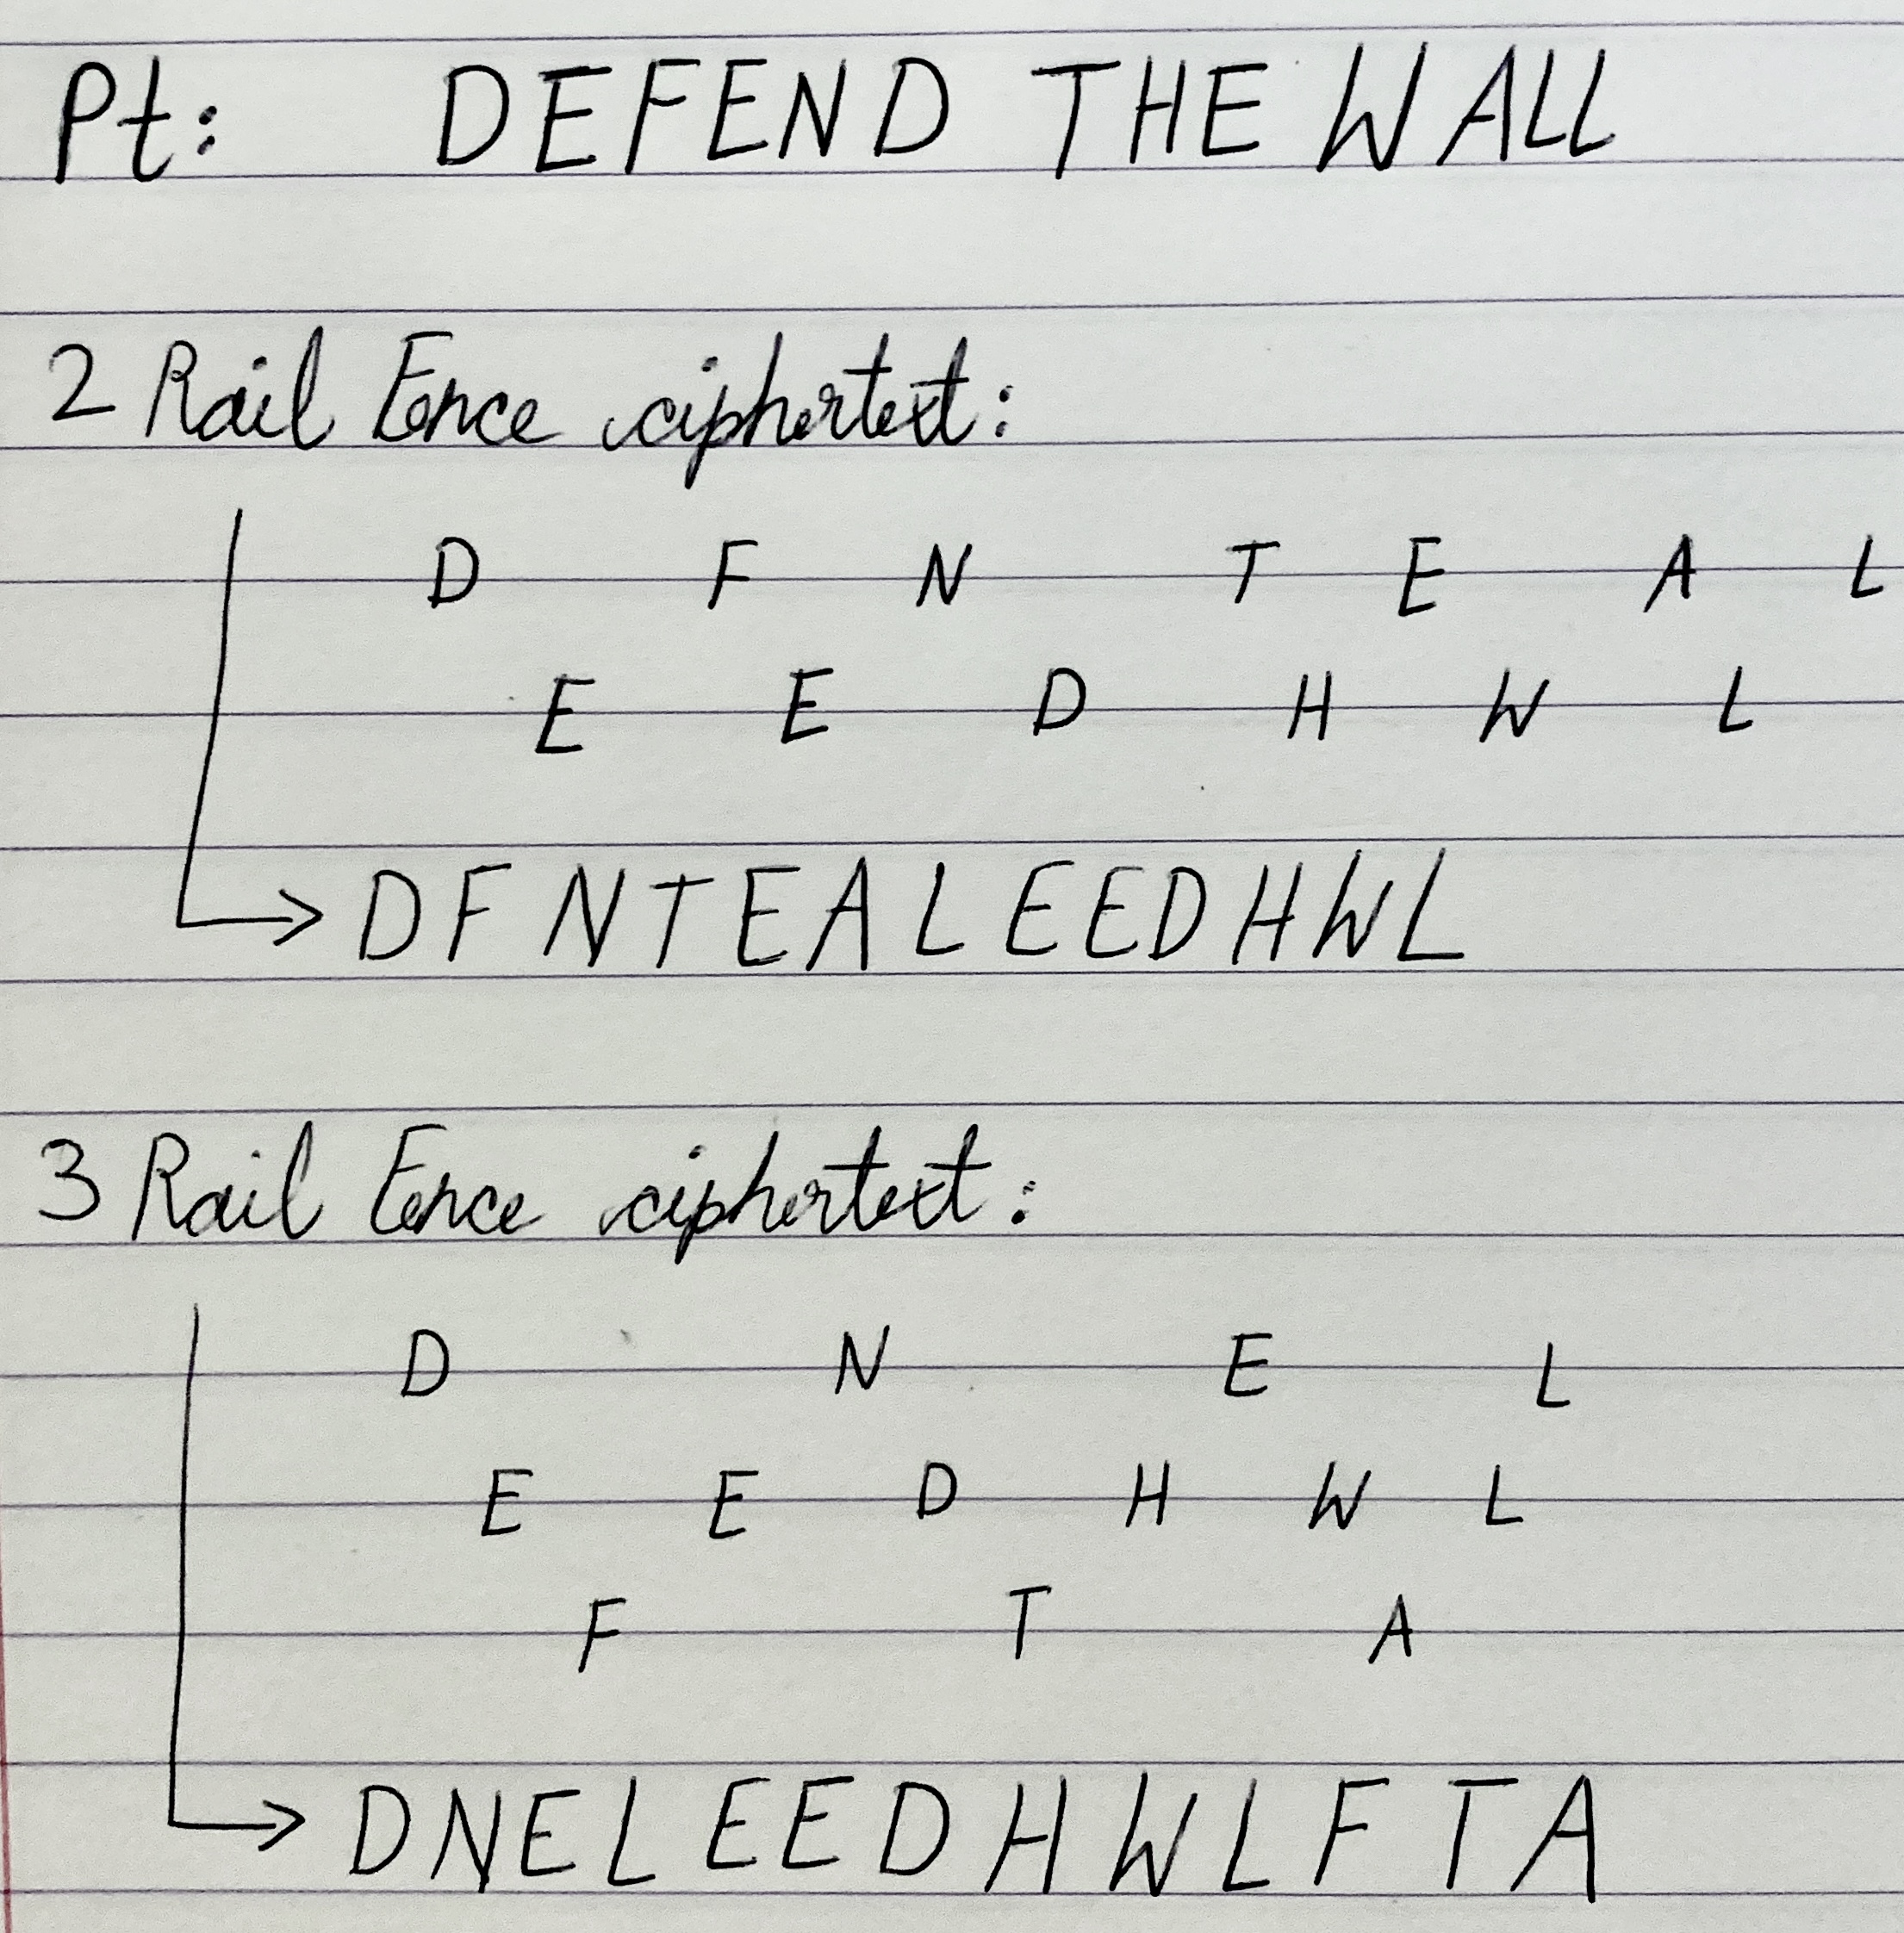 Pt: DEFEND THE WALL
2 Rail Fence ciphertext:
D F N T E A L
E E D H W L
→ DFNTEALEEDHWL
3 Rail Fence ciphertext:
D N E L
E E D H W L
F T A
→ DNELEEDHWLFTA